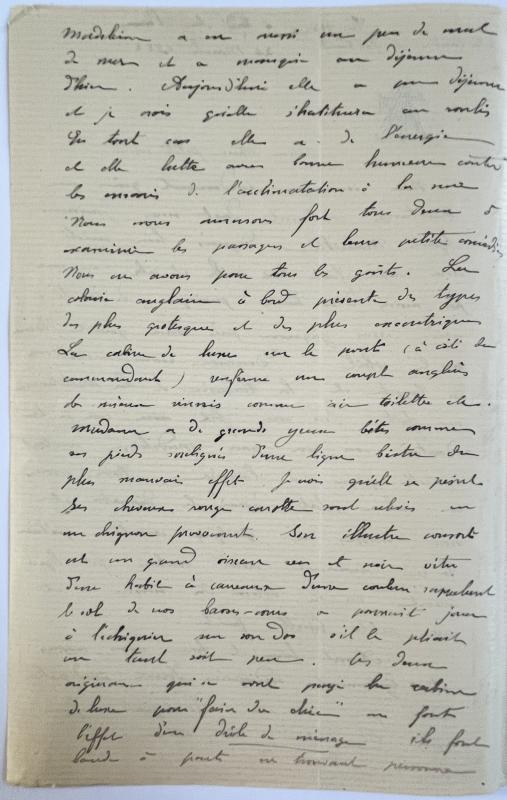 Madeleine a eu aussi un peu de mal
de mer et a mangé au déjeuner
d'hier. Aujourd'hui elle a pu déjeuner
et je crois qu'elle s'habituera au roulis
En tout cas elle a de l'énergie
et elle lutte avec bonne humeur contre
les ennuis de l'acclimatation à la mer
Nous nous amusons fort tous deux à
examiner les passagers et leurs petites comédies
Nous en avons pour tous les goûts. La
colonie anglaise à bord présente des types
des plus grotesques et des plus excentriques
La cabine de luxe sur le pont (à côté du
commandant) renferme un couple anglais
de mieux réussis comme air toilette etc.
Madame a de grands yeux bêtes comme
ses pieds soulignés d'une ligne bistre du
plus mauvais effet Je crois qu'elle se peint
Ses cheveux rouge carotte sont relevés en
un chignon provocant. Son illustre consort
est un grand oiseau sec et noir vêtu
d'un habit à carreaux d'une couleur rappelant
le sol de nos basses-cours on pourrait jouer
à l'échiquier sur son dos s'il le pliait
un tant soit peu. Ces deux
originaux qui se sont payé la cabine
de luxe pour "faire du chic" me font
l'effet d'un drôle de ménage ils font
bande à part ne trouvant personne